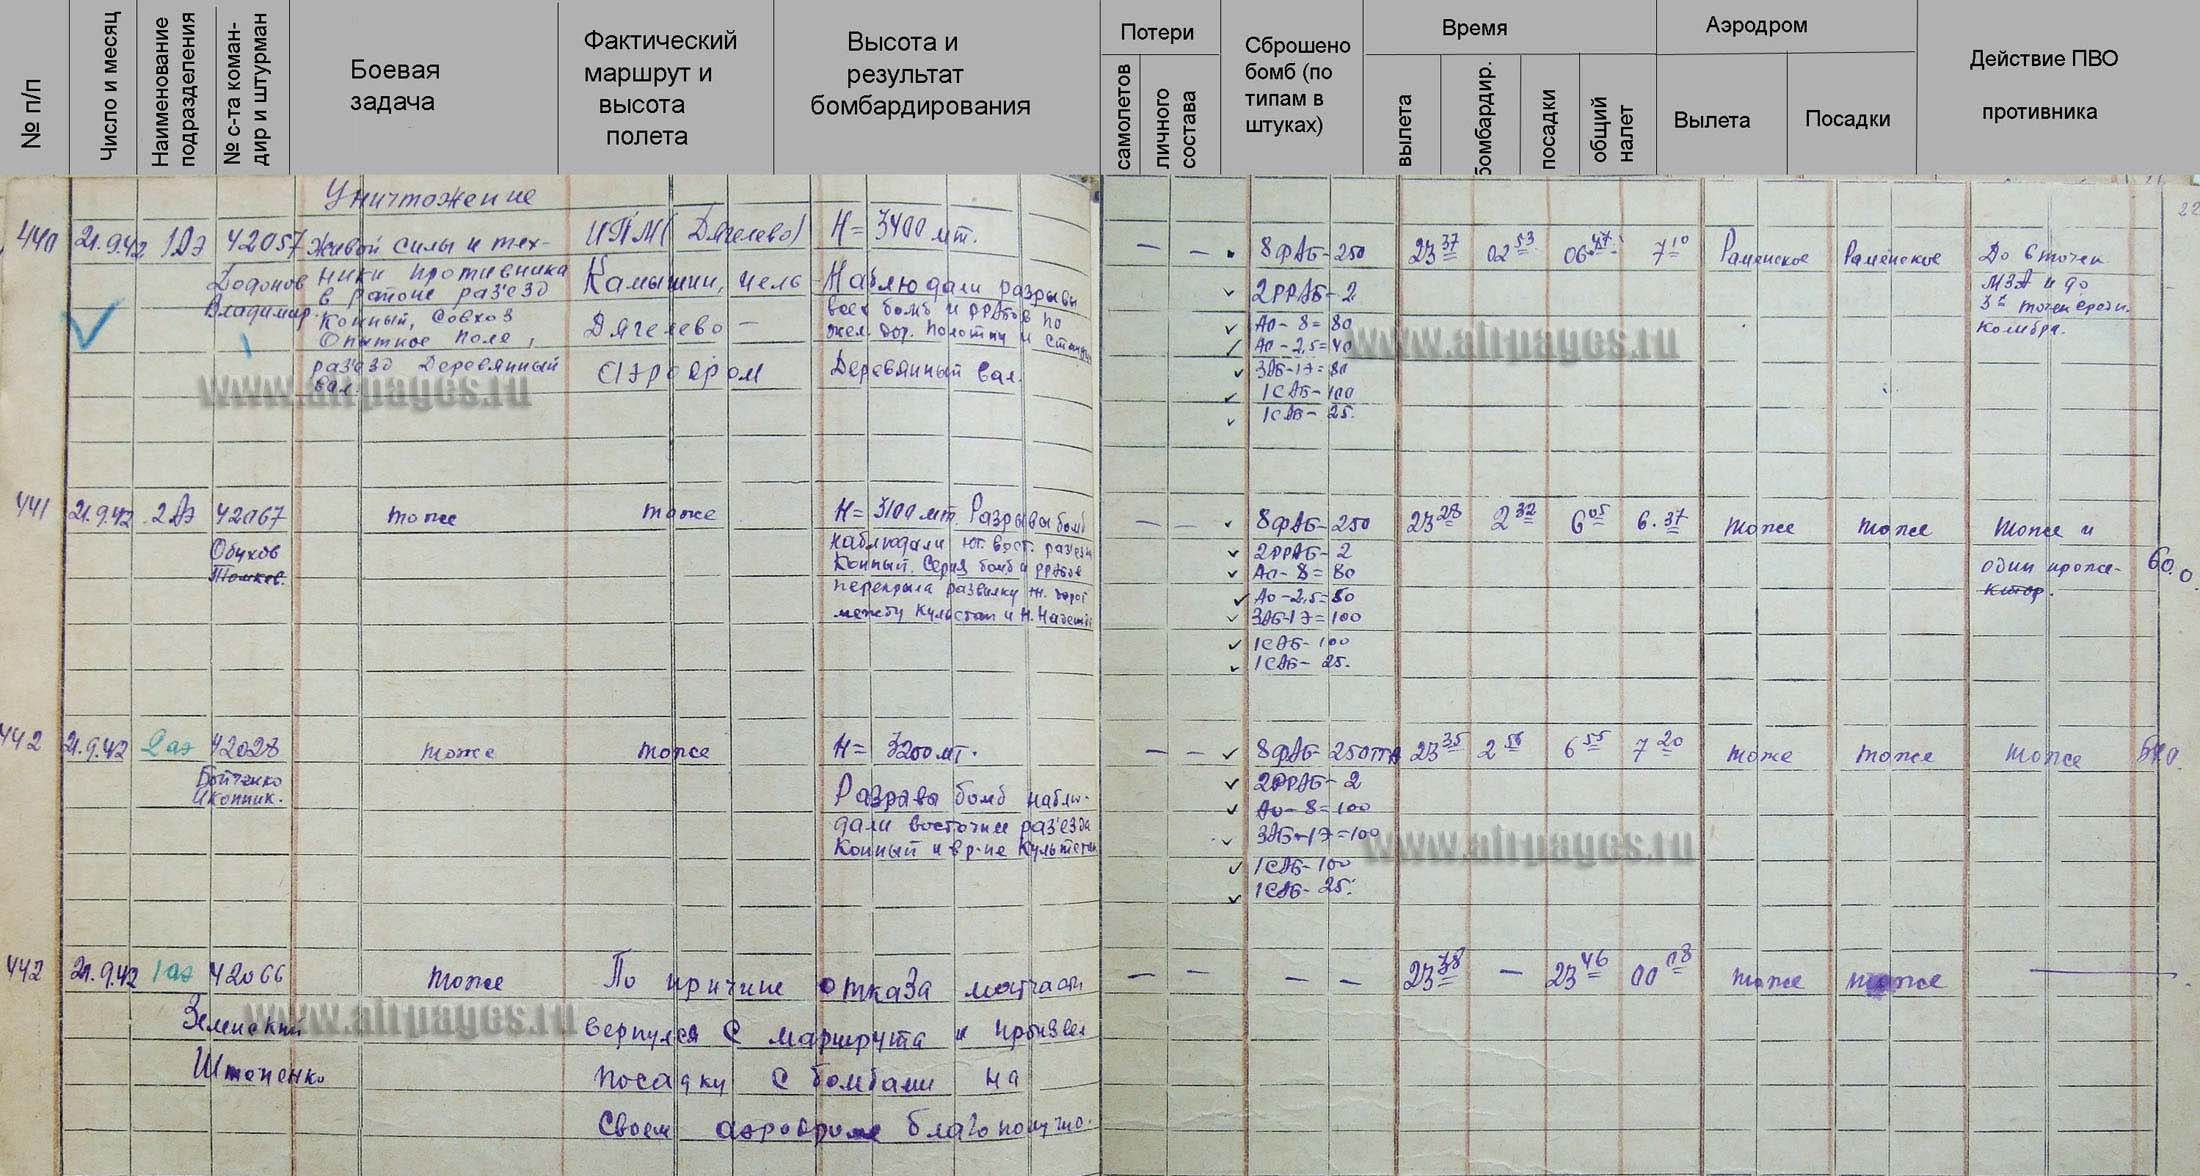 № п/п
Число и месяц
Наименование подразделения
№ с-та коман-
дир и штурман
Боевая
задача
Фактический
маршрут и
высота
полета
Высота и
результат
бомбардирования
Потери
самолетов
личного состава
Сброшено
бомб (по
типам в
штуках)
Время
вылета
бомбардир.
посадки
общий налет
Аэродром
Вылета
Посадки
Действие ПВО
противника
22
Уничтожение
440 21.9.42 1Аэ 42057 живой силы и тех-
ники противника
в районе раз'езд
Конный, Совхоз
Опытное поле,
раз'езд Деревянный
вал
Додонов
Владимир.
ИПМ (Дягелево)
Камышин, цель
Дягелево —
аэродром
Н = 3400 мт.
Наблюдали разрывы
всех бомб и РРАБов по
жел. дор. полотну и
Деревянный вал.
— —
8ФАБ-250
2РРАБ-2
Ао-8=80
Ао-2,5=40
ЗАБ-1Э=80
1САБ-100
1САБ-25.
23 37 02 53 06 47 7 10 Раменское Раменское
До 6 точек
МЗА и до
3х точек средн.
колибра.
441 21.9.42 2Аэ 42067 тоже тоже
Обухов
Томкев.
Н = 3100 мт. Разрывы бомб
наблюдали юг. вост. раз'езд
Конный. Серия бомб и РРАБов
перекрыла развилку ж. дорог
между Культстан и Н.
— —
8ФАБ-250
2РРАБ-2
Ао-8=80
Ао-2,5=80
ЗАБ-1Э=100
1САБ-100
1САБ-25.
23 28 2 32 6 05 6.37 тоже тоже
Тоже и
один проже-
ктор.
442 21.9.42 2аэ 42028 тоже тоже
Бойченко
Иконник.
Н = 3200 мт.
Разравы бомб наблю-
дали восточнее раз'езда
Конный и в р-не Культстан
— —
8ФАБ-250
2РРАБ-2
Ао-8=100
ЗАБ-1Э=100
1САБ-100
1САБ-25.
23 35 2 56 6 55 7 20 тоже тоже тоже
442 21.9.42 1аэ 42066 тоже
Земский
Штепенко
По причине отказа матчасти
вернулся с маршрута и произвел
посадку с бомбами на
своем аэродроме благополучно.
— — — — 23 38 — 23 46 00 08 тоже тоже —
www.airpages.ru
www.airpages.ru
www.airpages.ru
www.airpages.ru